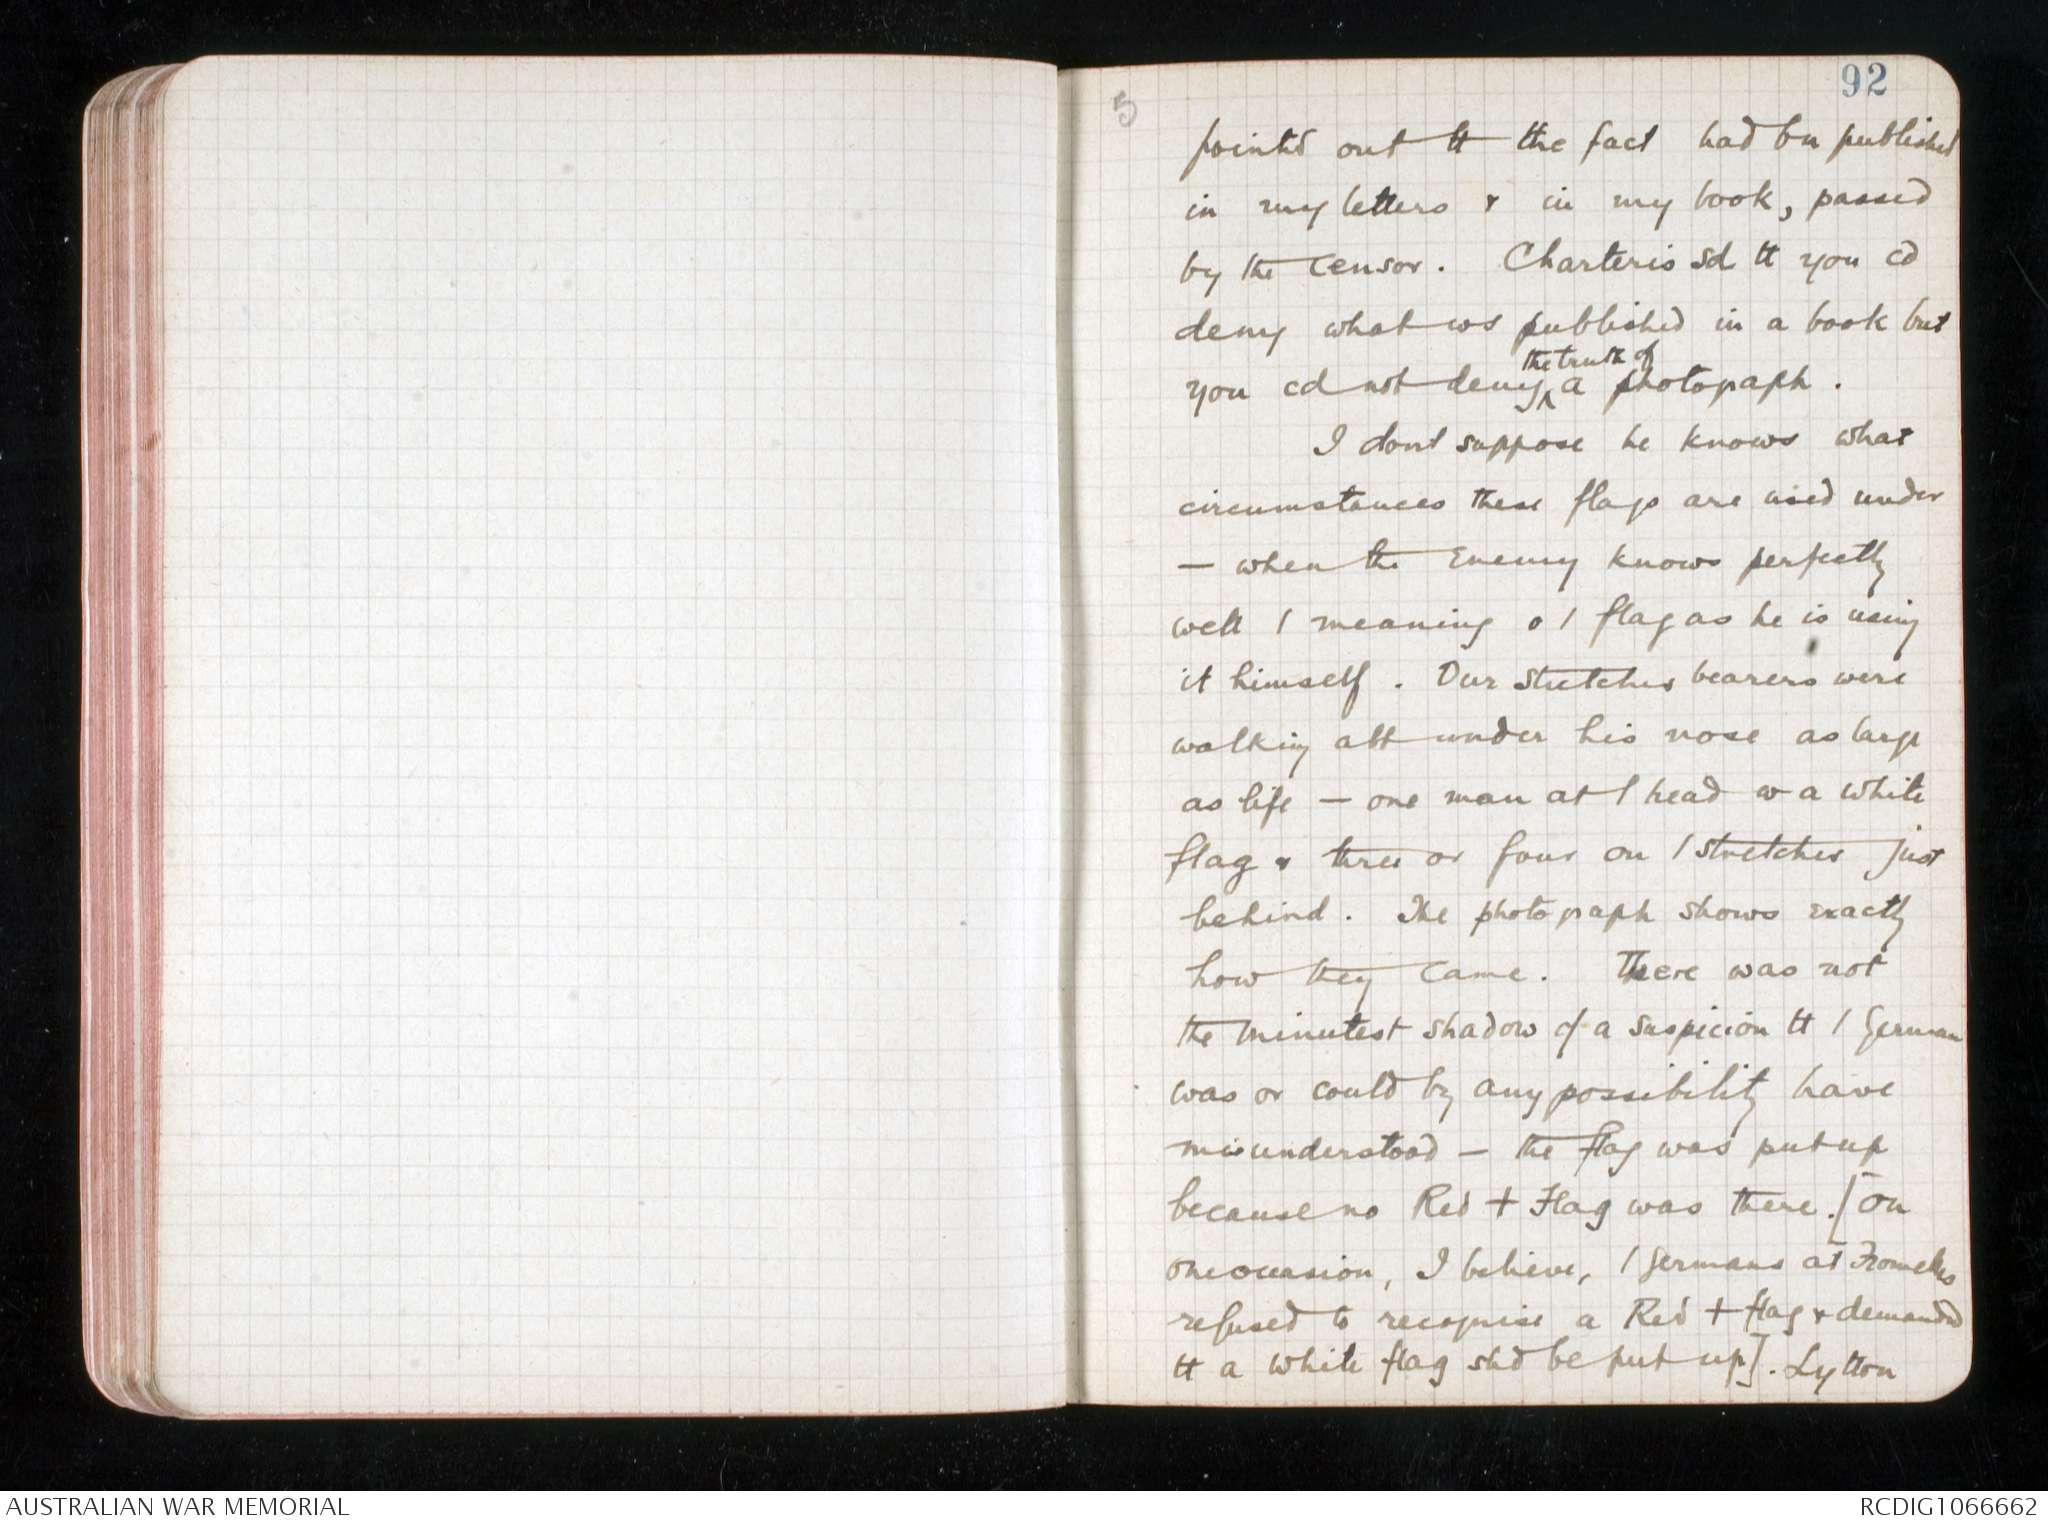 92
5
pointd out tt the fact had bn published
in my letters & in my book, passed
by the Censor. Charteris sd tt you cd
deny what ws published in a book but
you cd not deny ^the truth of a photograph.
I dont suppose he knows what
circumstances these flags are used under
— when the Enemy knows perfectly
well / meaning o / flag as he is using
it himself. Our stretcher bearers were
walking abt under his nose as large
as life — one man at / head w a white
flag & three or four on / stretcher just
behind. The photograph shows exactly
how they came. There was not
the minutest shadow of a suspicion tt / German
was or could by any possibility have
misunderstood — the flag was put up
because no Red + Flag was there. [On
one occasion, I believe, / Germans at Fromelles
refused to recognise a Red + flag & demanded
tt a white flag shd be put up]. Lytton
AUSTRALIAN WAR MEMORIAL
RCDIG1066662